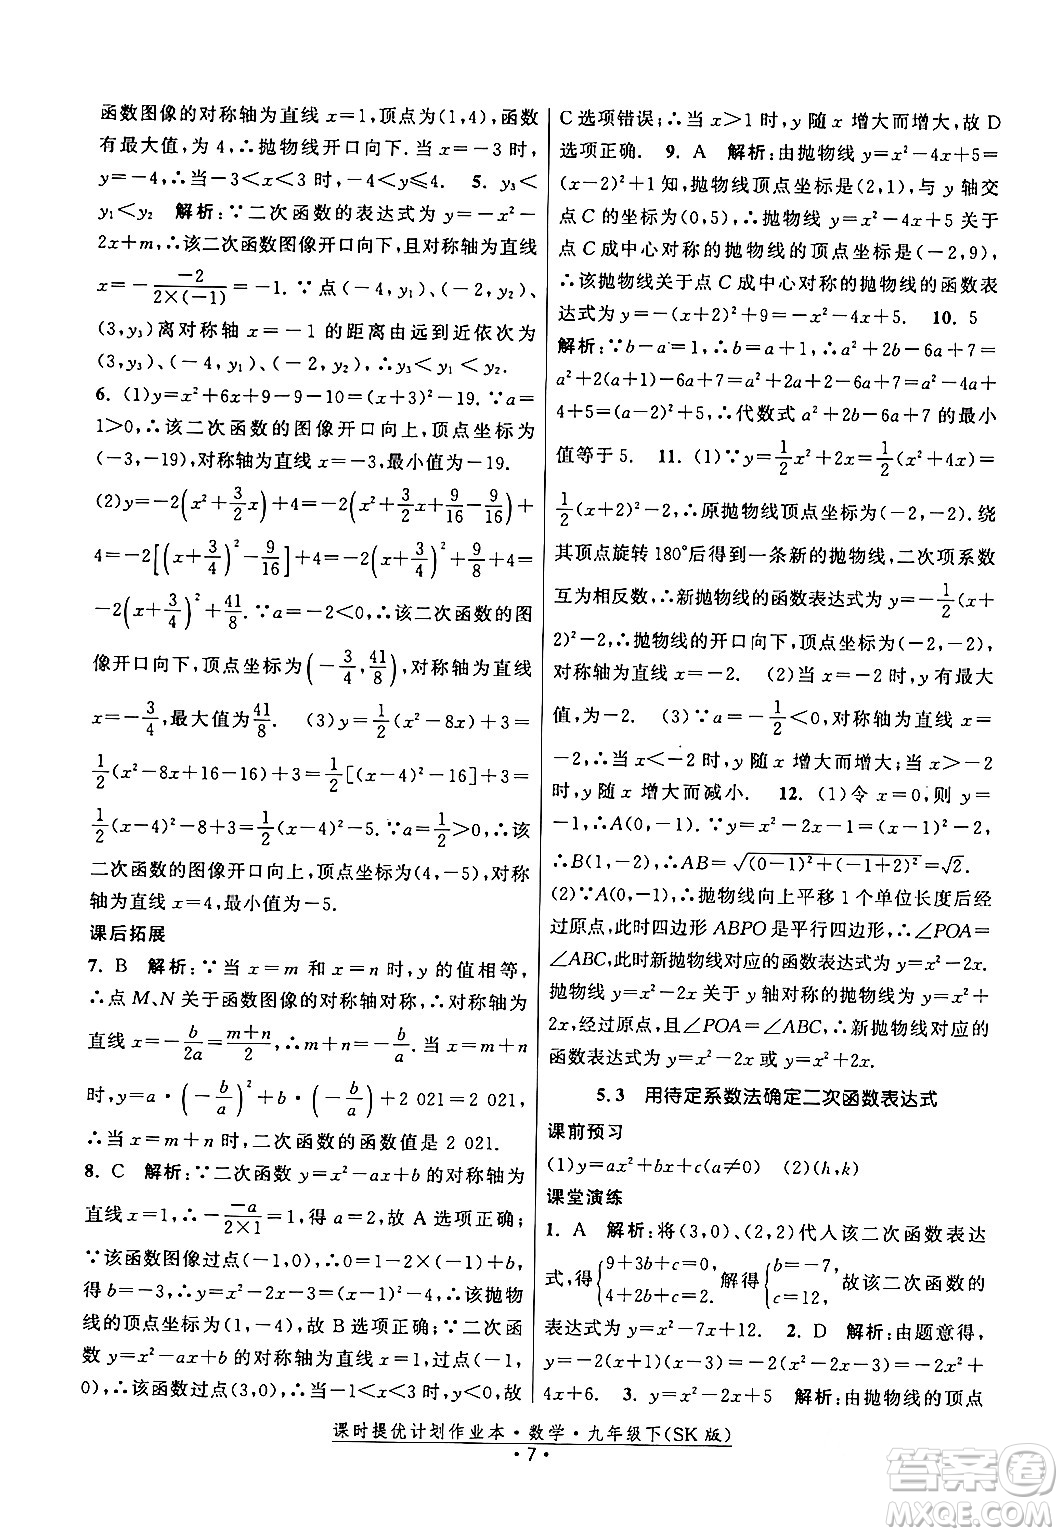 函数图像的对称轴为直线 x=1,顶点为(1,4),函数
有最大值,为 4,∴抛物线开口向下. 当 x=-3 时,
y=-4,∴当-3<x<3 时,-4<y≤4. 5. y₃<
y₁<y₂ 解析:∵二次函数的表达式为 y=-x²-
2x+m,∴该二次函数图像开口向下,且对称轴为直线
x=-\frac{-2}{2×(-1)}=-1. ∵点(-4,y₁)、(-2,y₂)、
(3,y₃)离对称轴 x=-1 的距离由远到近依次为
(3,y₃)、(-4,y₁)、(-2,y₂),∴y₃<y₁<y₂.
6. (1)y=x²+6x+9-9-10=(x+3)²-19. ∵a=
1>0,∴该二次函数的图像开口向上,顶点坐标为
(-3,-19),对称轴为直线 x=-3,最小值为-19.
(2)y=-2(x²+\frac{3}{2}x)+4=-2(x²+\frac{3}{2}x+\frac{9}{16}-\frac{9}{16})+
4=-2[(x+\frac{3}{4})²-\frac{9}{16}]+4=-2(x+\frac{3}{4})²+\frac{9}{8}+4=
-2(x+\frac{3}{4})²+\frac{41}{8}. ∵a=-2<0,∴该二次函数的图
像开口向下,顶点坐标为(-\frac{3}{4},\frac{41}{8}),对称轴为直线
x=-\frac{3}{4},最大值为\frac{41}{8}. (3)y=\frac{1}{2}(x²-8x)+3=
\frac{1}{2}(x²-8x+16-16)+3=\frac{1}{2}[(x-4)²-16]+3=
\frac{1}{2}(x-4)²-8+3=\frac{1}{2}(x-4)²-5. ∵a=\frac{1}{2}>0,∴该
二次函数的图像开口向上,顶点坐标为(4,-5),对称
轴为直线 x=4,最小值为-5.
课后拓展
7. B 解析:∵当 x=m 和 x=n 时,y 的值相等,
∴点 M、N 关于函数图像的对称轴对称,∴对称轴为
直线 x=-\frac{b}{2a}=\frac{m+n}{2},∴m+n=-\frac{b}{a}. 当 x=m+n
时,y=a·(-\frac{b}{a})²+b·(-\frac{b}{a})+2 021=2 021.
∴当 x=m+n 时,二次函数的函数值是 2 021.
8. C 解析:∵二次函数 y=x²-ax+b 的对称轴为
直线 x=1,∴-\frac{-a}{2×1}=1,得 a=2,故 A 选项正确;
∵该函数图像过点(-1,0),∴0=1-2×(-1)+b,
得 b=-3,∴y=x²-2x-3=(x-1)²-4,∴该抛物
线的顶点坐标为(1,-4),故 B 选项正确;∵二次函
数 y=x²-ax+b 的对称轴为直线 x=1,过点(-1,
0),∴该函数过点(3,0),∴当-1<x<3 时,y<0,故
C 选项错误;∴当 x>1 时,y 随 x 增大而增大,故 D
选项正确. 9. A 解析:由抛物线 y=x²-4x+5=
(x-2)²+1 知,抛物线顶点坐标是(2,1),与 y 轴交
点 C 的坐标为(0,5),∴抛物线 y=x²-4x+5 关于
点 C 成中心对称的抛物线的顶点坐标是(-2,9),
∴该抛物线关于点 C 成中心对称的抛物线的函数表
达式为 y=-(x+2)²+9=-x²-4x+5. 10. 5
解析:∵b-a=1,∴b=a+1,∴a²+2b-6a+7=
a²+2(a+1)-6a+7=a²+2a+2-6a+7=a²-4a+
4+5=(a-2)²+5,∴代数式 a²+2b-6a+7 的最小
值等于 5. 11. (1)∵y=\frac{1}{2}x²+2x=\frac{1}{2}(x²+4x)=
\frac{1}{2}(x+2)²-2,∴原抛物线顶点坐标为(-2,-2). 绕
其顶点旋转 180°后得到一条新的抛物线,二次项系数
互为相反数,∴新抛物线的函数表达式为 y=-\frac{1}{2}(x+
2)²-2,∴抛物线的开口向下,顶点坐标为(-2,-2),
对称轴为直线 x=-2. (2)当 x=-2 时,y 有最大
值,为-2. (3)∵a=-\frac{1}{2}<0,对称轴为直线 x=
-2,∴当 x<-2 时,y 随 x 增大而增大,当 x>-2
时,y 随 x 增大而减小. 12. (1)令 x=0,则 y=
-1,∴A(0,-1). ∵y=x²-2x-1=(x-1)²-2,
∴B(1,-2),∴AB=\sqrt{(0-1)²+(-1+2)²}=\sqrt{2}.
(2)∵A(0,-1),∴抛物线向上平移 1 个单位长度后经
过原点,此时四边形 ABPO 是平行四边形,∴∠POA=
∠ABC,此时新抛物线对应的函数表达式为 y=x²-2x.
抛物线 y=x²-2x 关于 y 轴对称的抛物线为 y=x²+
2x,经过原点,此时∠POA=∠ABC,∴新抛物线对应的
函数表达式为 y=x²-2x 或 y=x²+2x.
5.3 用待定系数法确定二次函数表达式
课前预习
(1)y=ax²+bx+c(a≠0) (2)(h,k)
课堂演练
1. A 解析:将(3,0)、(2,2)代人该二次函数表达
式,得{9+3b+c=0, 4+2b+c=2. 解得{b=-7, c=12, 故该二次函数的
表达式为 y=x²-7x+12. 2. D 解析:由题意得,
y=x²-(1-x)(1-5x)=x²-(1-6x+5x²)=-4x²+
4x+6x 3. y=-x²-4x+5 解析:由抛物线的顶点
课时提优计划作业本·数学·九年级下(SK 版)
·7·
答案圈
MXQE.COM